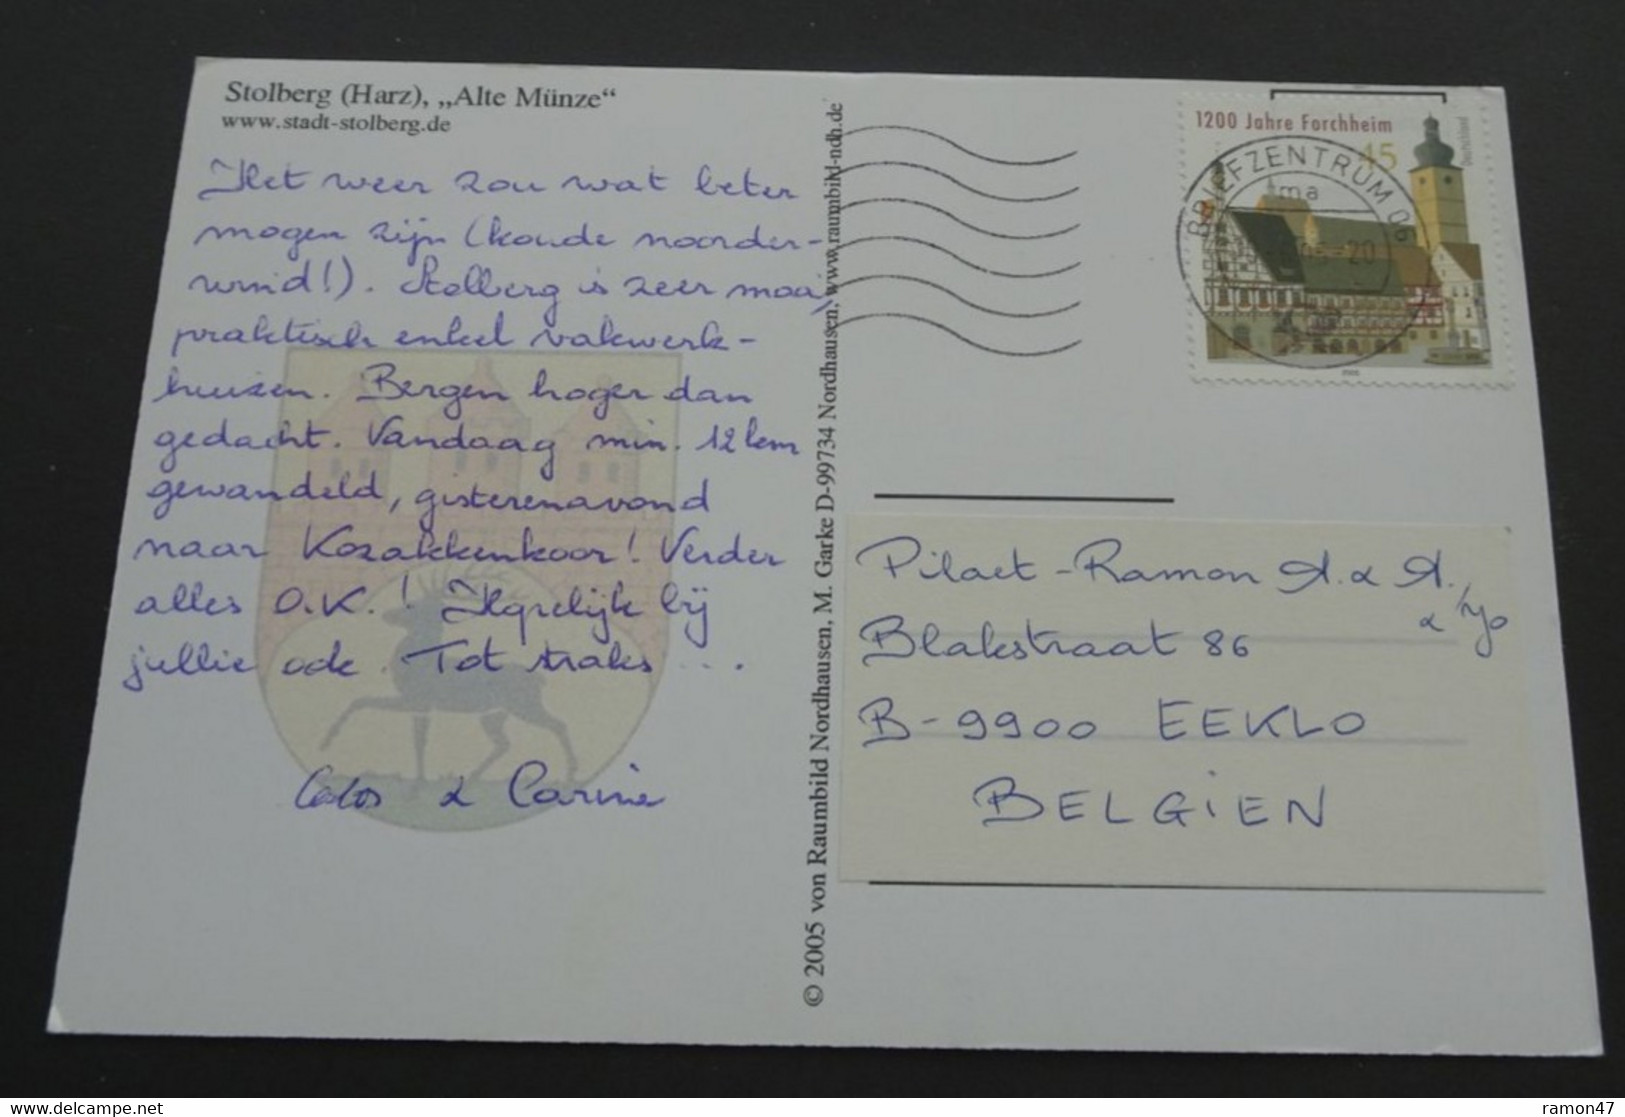 Stolberg (Harz), „Alte Münze“
www.stadt-stolberg.de
Het weer zou wat beter
mogen zijn (koude noorder-
wind!). Stolberg is zeer mooi,
praktisch enkel vakwerk-
huizen. Bergen hoger dan
gedacht. Vandaag min. 12 km
gewandeld, gisterenavond
naar Kozakkenkoor! Verder
alles O.K.! Hopelijk bij
jullie ook. Tot straks ...
& Carine
© 2005 von Raumbild Nordhausen, M. Garke D-99734 Nordhausen, www.raumbild-ndh.de
1200 Jahre Forchheim
45
Deutschland
BRIEFZENTRUM 06
ma
20
Pilaet-Ramon A. & A.
&
Blakstraat 86
B-9900 EEKLO
BELGIEN
delcampe.net
ramon47